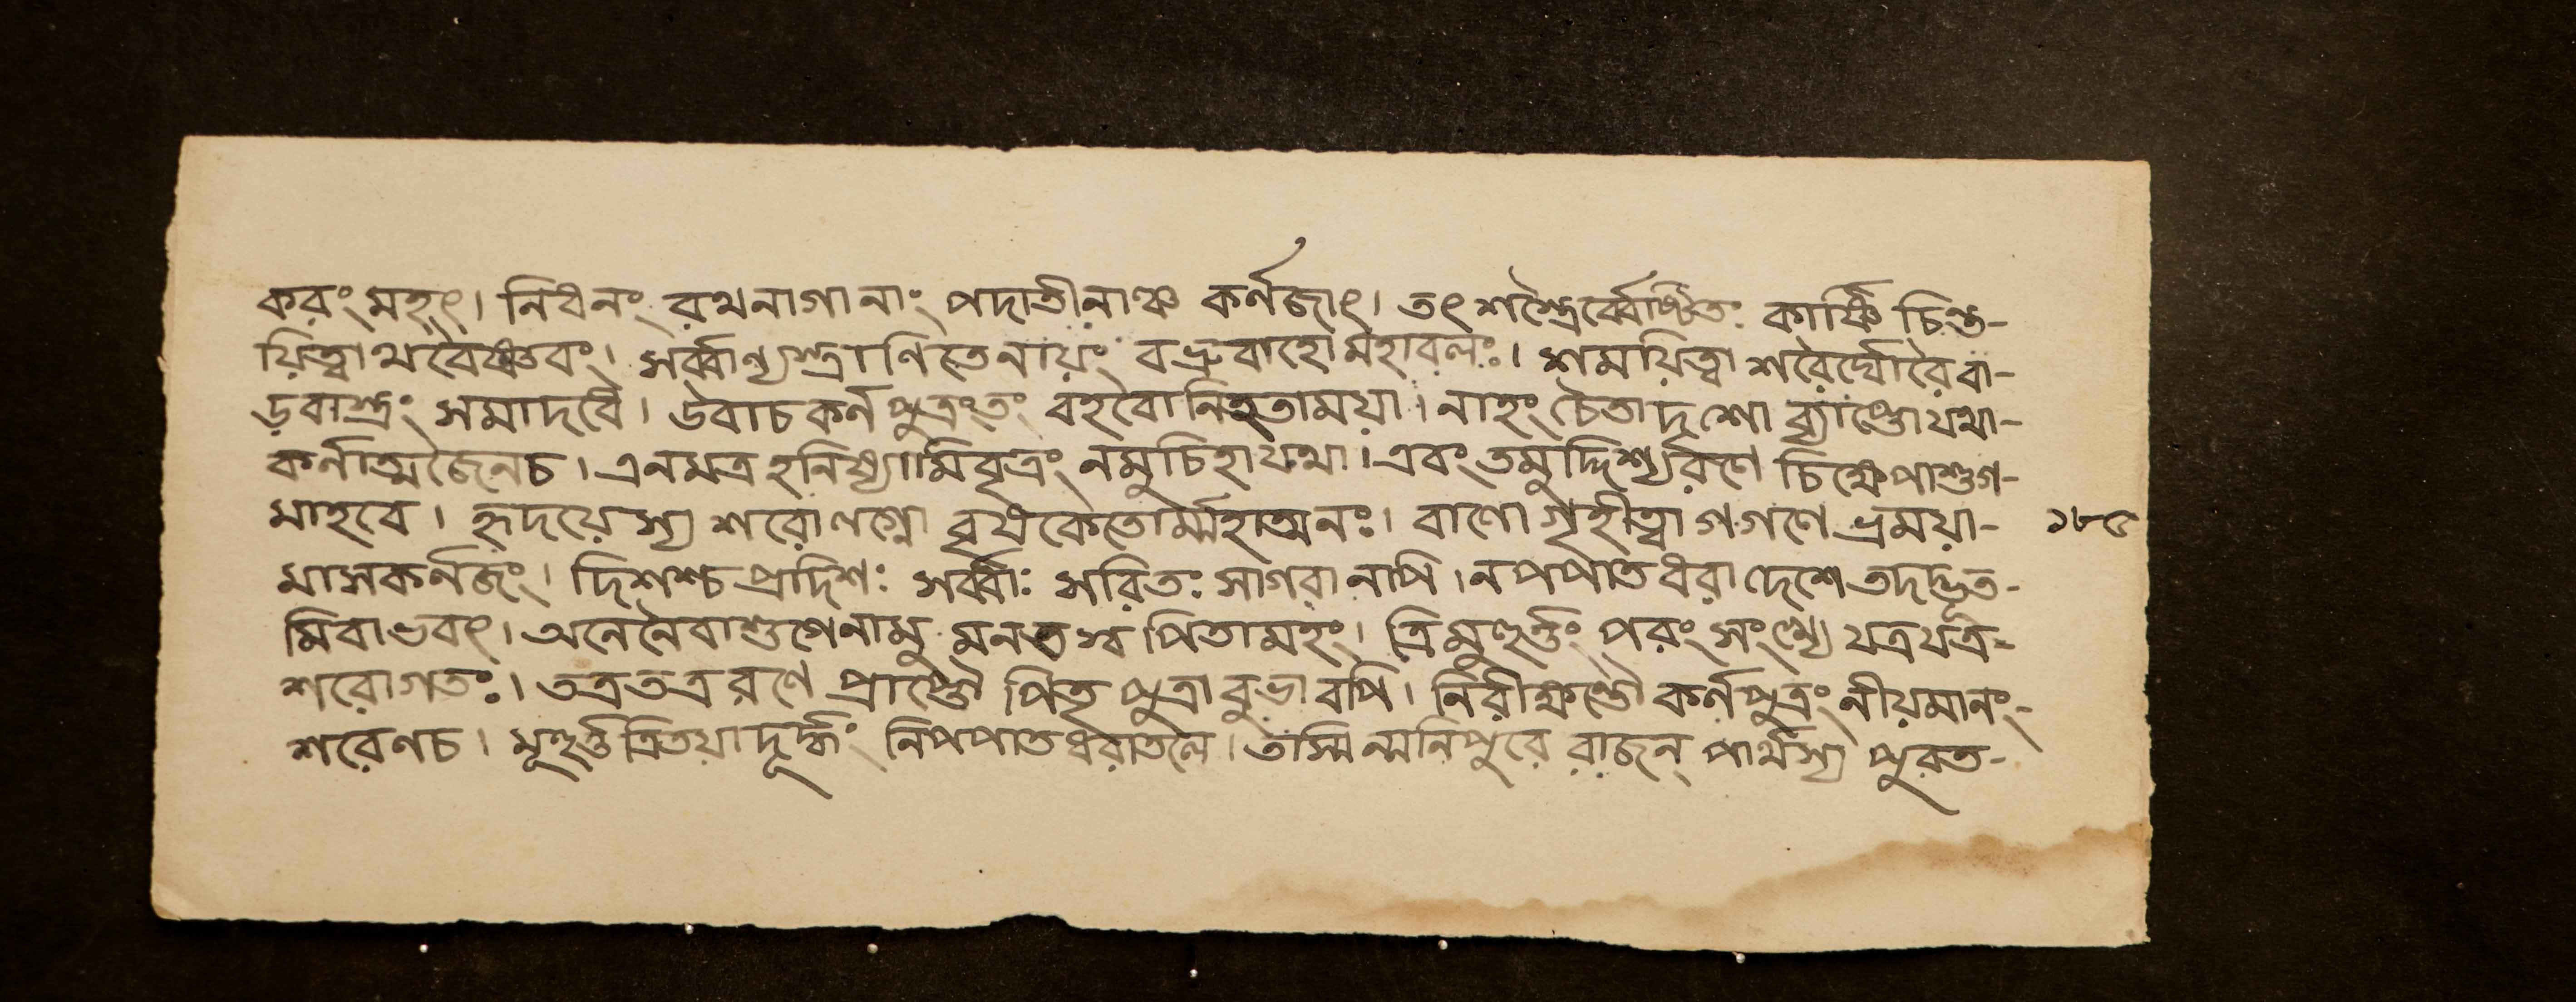 করং মহৎ। নিধনং রথনাগানাং পদাতীনাঞ্চ কর্ণজাৎ। তৎ শস্ত্রৈর্ব্বেষ্টিতঃ কার্ষ্ণি চিন্ত-
য়িত্বাথ বৈষ্ণবং। সর্ব্বাণ্যস্ত্রাণি তেনায়ং বভ্রুবাহো মহাবলঃ। শময়িত্বা শরৈর্ঘোরৈ বা-
ড়বাস্ত্রং সমাদধৈ। উবাচ কর্ণপুত্রং তং বহবো নিহতা ময়া। নাহং চৈতাদৃশো ব্যাপ্তো যথা-
কর্ণাত্মজৈনচ। এনমত্র হনিষ্যামি বৃত্রং নমুচিহা যথা। এবং তমুদ্দিশ্য রণে চিক্ষেপাশুগ-
মাহবে। হৃদয়েস্য শরো ণগ্নো বৃষকেতোর্ম্মহাত্মনঃ। বাণো গৃহীত্বা গগণে ভ্রময়া- ১৮৫
মাস কর্ণজং। দিশশ্চ প্রদিশঃ সর্ব্বাঃ সরিতঃ সাগরানাপি। ন পপাত ধরাদেশে তদদ্ভুত-
মিবাভবৎ। অনেনৈবাশুগেনামু মনন্তস্ব পিতামহং। ত্রিমুহূর্ত্তং পরং সংখ্যে যত্র যত্র-
শরো গতঃ। তত্র তত্র রণে প্রাপ্তৌ পিতৃপুত্রাবুভাবপি। নিরীক্ষন্তৌ কর্ণপুত্রং নীয়মানং-
শরেণচ। মূহূর্ত্তত্রিতয়াদূর্দ্ধং নিপপাত ধরাতলে। তস্মিন্মনিপুরে রাজন্ পার্থস্য পুরত-